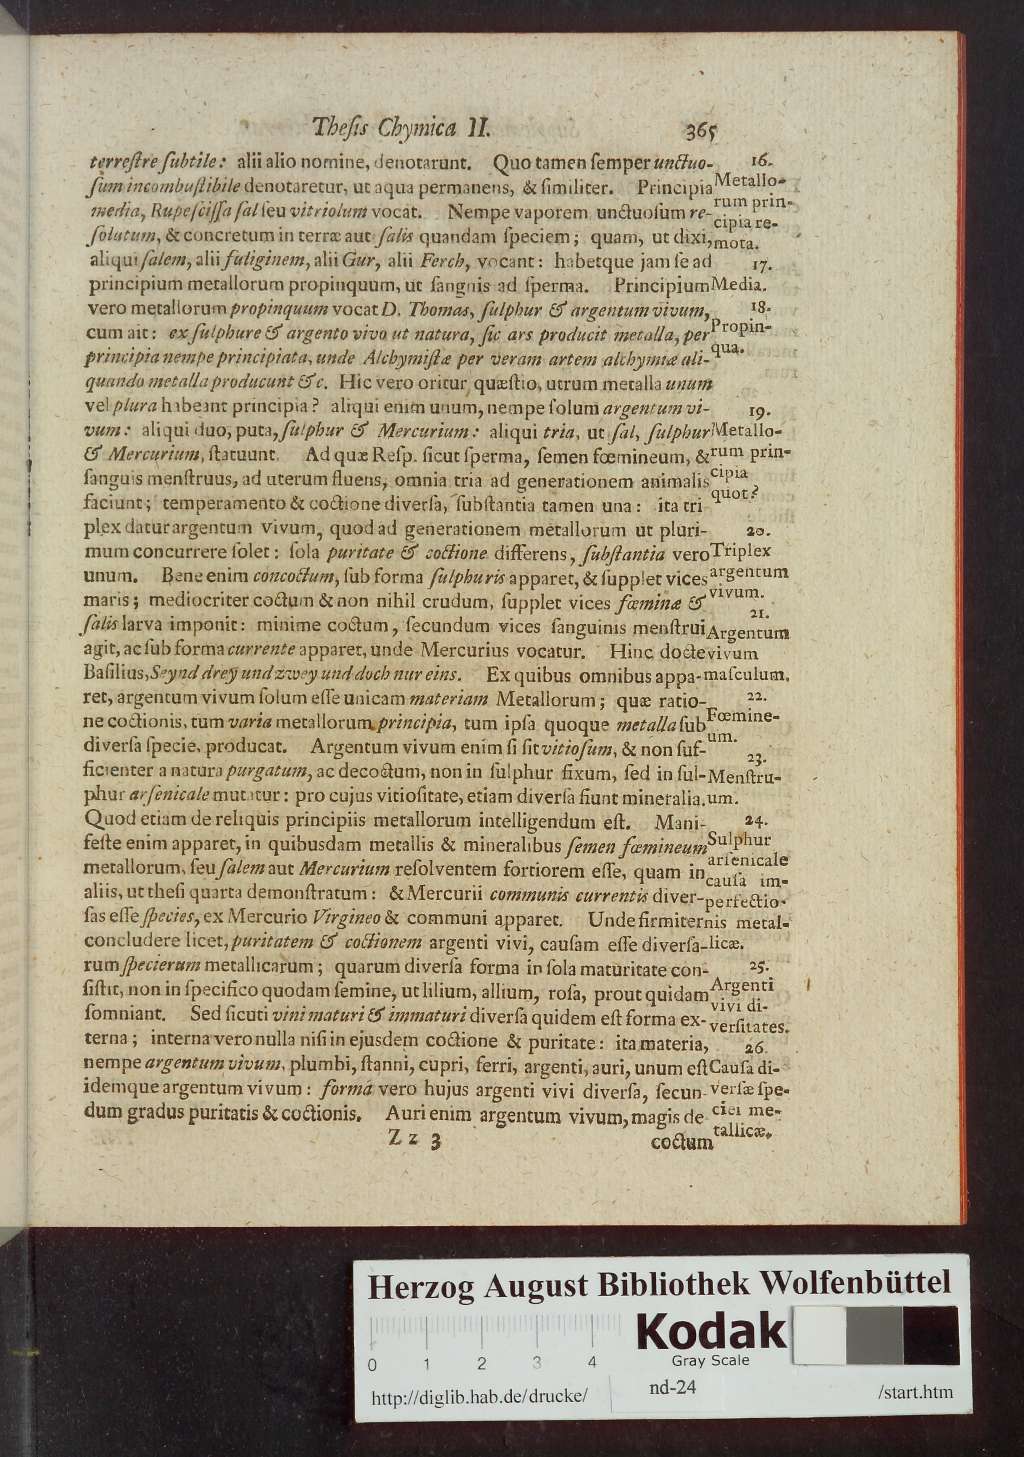 Theſis Chymica II. 365
terreſtre ſubtile: alii alio nomine, denotarunt. Quo tamen ſemper unctuo-
ſum incombuſtibile denotaretur, ut aqua permanens, & ſimiliter. Principia
media, Rupeſciſſa ſal ſeu vitriolum vocat. Nempe vaporem unctuoſum re-
ſolutum, & concretum in terræ aut ſalis quandam ſpeciem; quam, ut dixi,
aliqui ſalem, alii fuliginem, alii Gur, alii Ferch, vocant: habetque jam ſe ad
principium metallorum propinquum, ut ſanguis ad ſperma. Principium
vero metallorum propinquum vocat D. Thomas, ſulphur & argentum vivum,
cum ait: ex ſulphure & argento vivo ut natura, ſic ars producit metalla, per
principia nempe principiata, unde Alchymiſtæ per veram artem alchymiæ ali-
quando metalla producunt &c. Hic vero oritur quæſtio, utrum metalla unum
vel plura habeant principia? aliqui enim unum, nempe ſolum argentum vi-
vum: aliqui duo, puta, ſulphur & Mercurium: aliqui tria, ut ſal, ſulphur
& Mercurium, ſtatuunt. Ad quæ Reſp. ſicut ſperma, ſemen fœmineum, &
ſanguis menſtruus, ad uterum fluens, omnia tria ad generationem animalis
faciunt; temperamento & coctione diverſa, ſubſtantia tamen una: ita tri-
plex datur argentum vivum, quod ad generationem metallorum ut pluri-
mum concurrere ſolet: ſola puritate & coctione differens, ſubſtantia vero
unum. Bene enim concoctum, ſub forma ſulphuris apparet, & ſupplet vices
maris; mediocriter coctum & non nihil crudum, ſupplet vices fœminæ &
ſalis larva imponit: minime coctum, ſecundum vices ſanguinis menſtrui
agit, ac ſub forma currente apparet, unde Mercurius vocatur. Hinc docte
Baſilius, Seynd dreÿ und zwey und doch nur eins. Ex quibus omnibus appa-
ret, argentum vivum ſolum eſſe unicam materiam Metallorum; quæ ratio-
ne coctionis, tum varia metallorum principia, tum ipſa quoque metalla ſub
diverſa ſpecie, producat. Argentum vivum enim ſi ſit vitioſum, & non ſuf-
ficienter a natura purgatum, ac decoctum, non in ſulphur fixum, ſed in ſul-
phur arſenicale mutatur: pro cujus vitioſitate, etiam diverſa fiunt mineralia.
Quod etiam de reliquis principiis metallorum intelligendum eſt. Mani-
feſte enim apparet, in quibusdam metallis & mineralibus ſemen fœmineum
metallorum, ſeu ſalem aut Mercurium reſolventem fortiorem eſſe, quam in
aliis, ut theſi quarta demonſtratum: & Mercurii communis currentis diver-
ſas eſſe ſpecies, ex Mercurio Virgineo & communi apparet. Unde firmiter
concludere licet, puritatem & coctionem argenti vivi, cauſam eſſe diverſa-
rum ſpecierum metallicarum; quarum diverſa forma in ſola maturitate con-
ſiſtit, non in ſpecifico quodam ſemine, ut lilium, allium, roſa, prout quidam
ſomniant. Sed ſicuti vini maturi & immaturi diverſa quidem eſt forma ex-
terna; interna vero nulla niſi in ejusdem coctione & puritate: ita materia,
nempe argentum vivum, plumbi, ſtanni, cupri, ferri, argenti, auri, unum eſt
idemque argentum vivum: forma vero hujus argenti vivi diverſa, ſecun-
dum gradus puritatis & coctionis. Auri enim argentum vivum, magis de-
Z z 3 coctum
16.
Metallo-
rum prin-
cipia re-
mota.
17.
Media.
18.
Propin-
qua.
19.
Metallo-
rum prin-
cipia
quot?
20.
Triplex
argentum
vivum.
21.
Argentum
vivum
maſculum.
22.
Fœmine-
um.
23.
Menſtru-
um.
24.
Sulphur
arſenicale
cauſa im-
perfectio-
nis metal-
licæ.
25.
Argenti
vivi di-
verſitates.
26.
Cauſa di-
verſæ ſpe-
ciei me-
tallicæ.
Herzog August Bibliothek Wolfenbüttel
Kodak
Gray Scale
0 1 2 3 4
http://diglib.hab.de/drucke/ nd-24 /start.htm